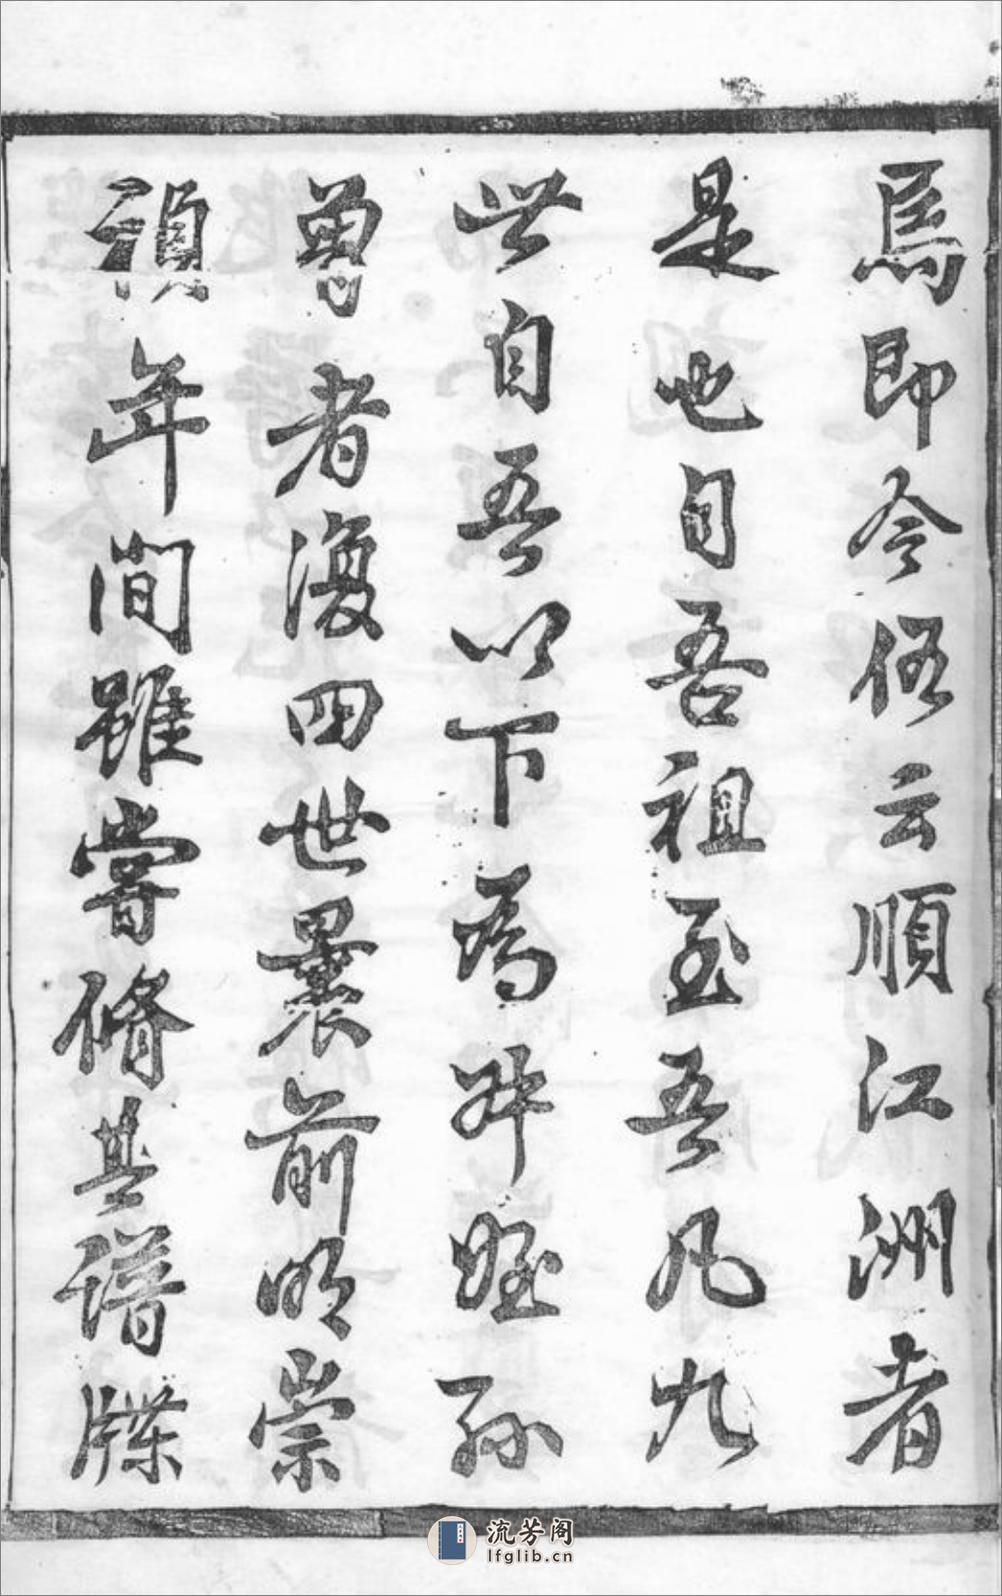 焉即今俗云順江洲者
是也自吾祖至吾凡九
世自吾以下為姪孫
曾者復四世曩前明崇
禎年間雖嘗脩其譜牒
流芳阁
lfglib.cn